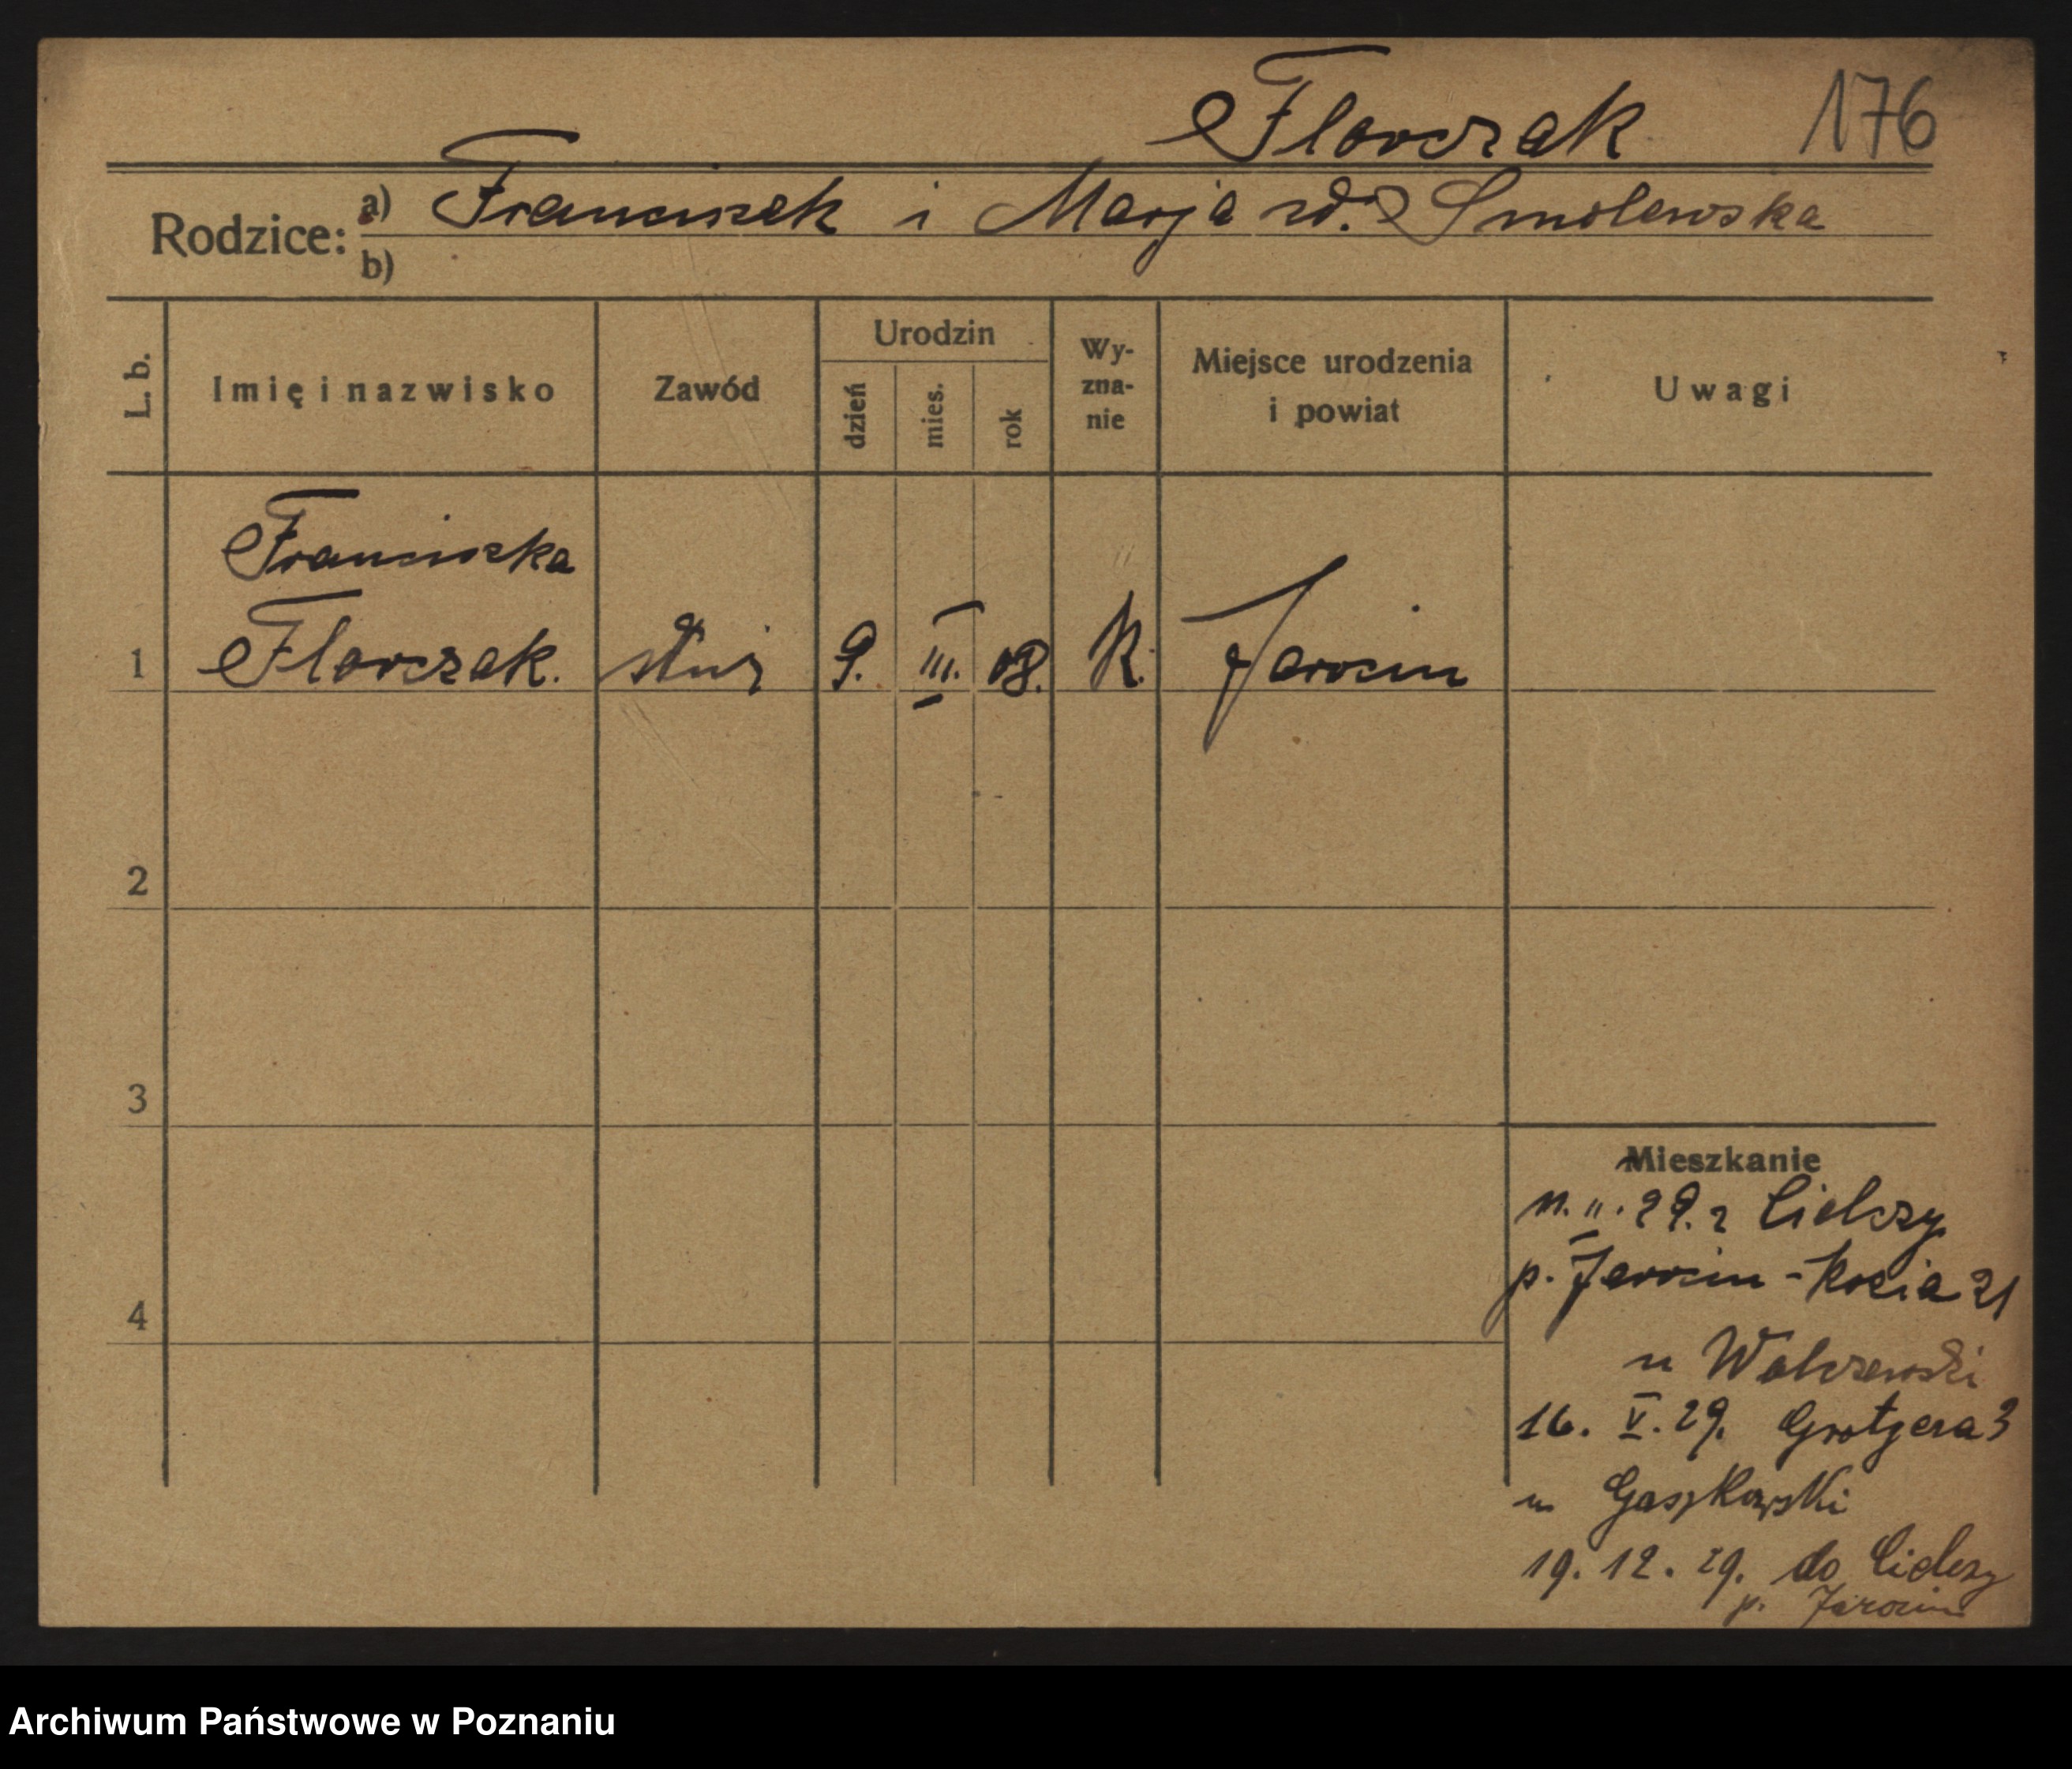 Florczak 176
Rodzice: a) Franciszek i Marja zd. Smolewska
b)
L. b. Imię i nazwisko Zawód Urodzin dzień mies. rok Wy-zna-nie Miejsce urodzenia i powiat Uwagi
Franciszka
1 Florczak. służ 9. III. 08. K. Jarocin
2
3
4
Mieszkanie
11. II. 29. z Cielczy
p. Jarocin - Kozia 21
u
16. V. 29. Grotgera 3
u Gaszkowski
19. 12. 29. do Cielczy
p. Jarocin
Archiwum Państwowe w Poznaniu